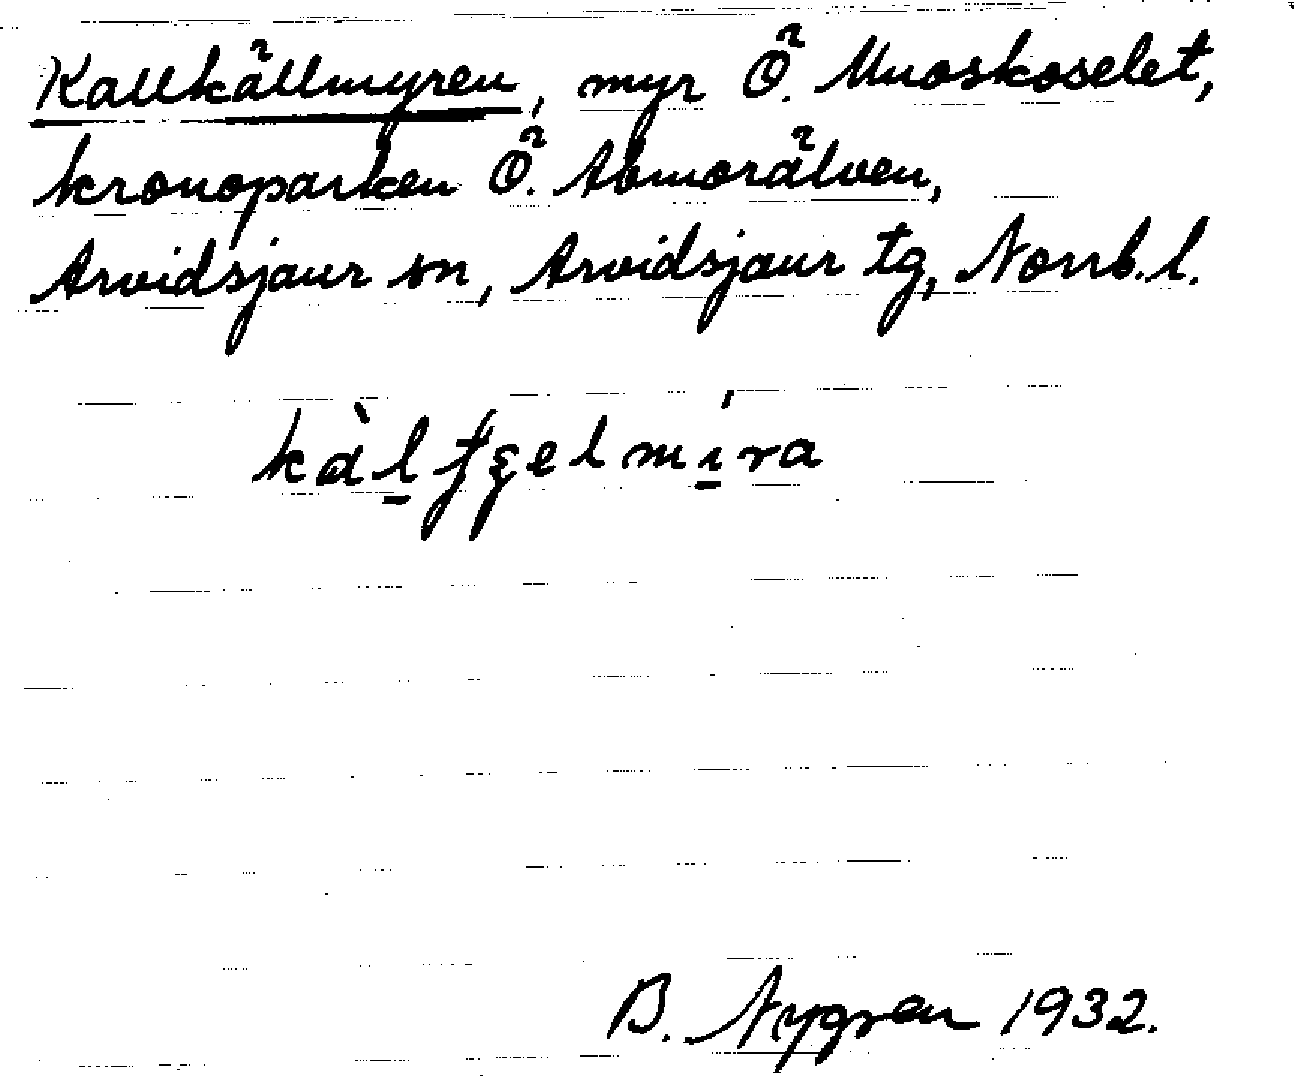 Kallkällmyren, myr Ö. Muoskoselet,
kronoparken Ö. Abmorälven,
Arvidsjaur sn, Arvidsjaur tg, Norrb. l.
B. Nygren 1932.